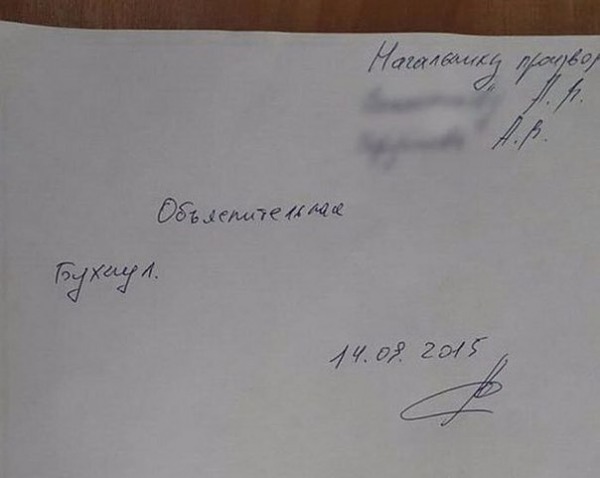 Начальнику произвор
Л. В.
А. В.
Объяснительная
Бухнул.
14.08. 2015